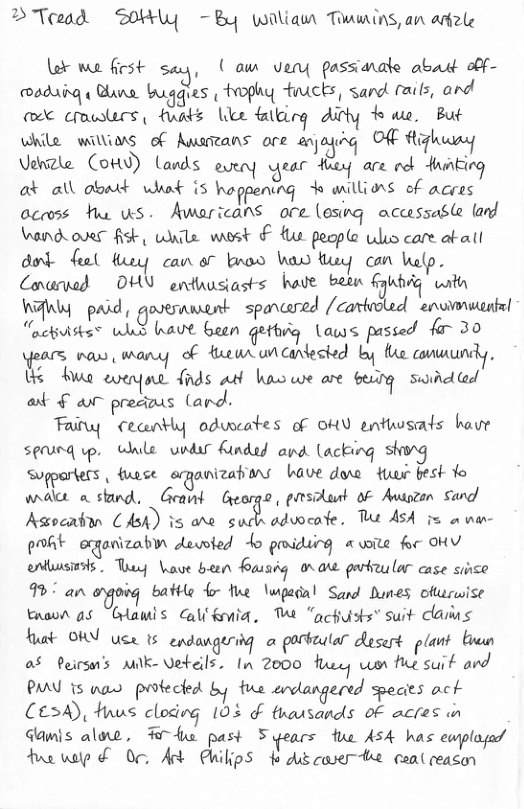 2) Tread Softly - By William Timmins, an article
Let me first say, I am very passionate about off-
roading. Dune buggies, trophy trucks, sand rails, and
rock crawlers, that's like talking dirty to me. But
while millions of Americans are enjoying Off Highway
Vehicle (OHV) lands every year they are not thinking
at all about what is happening to millions of acres
across the U.S. Americans are losing accessable land
hand over fist, while most of the people who care at all
dont feel they can or know how they can help.
Concerned OHV enthusiasts have been fighting with
highly paid, government sponcered/controled environmental
"activists" who have been getting laws passed for 30
years now, many of them uncontested by the community.
It's time everyone finds out how we are being swindled
out of our precious land.
Fairly recently advocates of OHV enthusiasts have
sprung up. While under funded and lacking strong
supporters, these organizations have done their best to
make a stand. Grant George, president of American Sand
Association (ASA) is one such advocate. The ASA is a non-
profit organization devoted to providing a voice for OHV
enthusiasts. They have been focusing on one particular case sinse
98: an ongoing battle for the Imperial Sand Dunes, otherwise
known as "Glamis California. The "activists" suit claims
that OHV use is endangering a particular desert plant known
as Peirson's Milk-Veteils. In 2000 they won the suit and
PMV is now protected by the endangered species act
(ESA), thus closing 10's of thousands of acres in
Glamis alone. For the past 5 years the ASA has employed
the help of Dr. Art Philips to discover the real reason